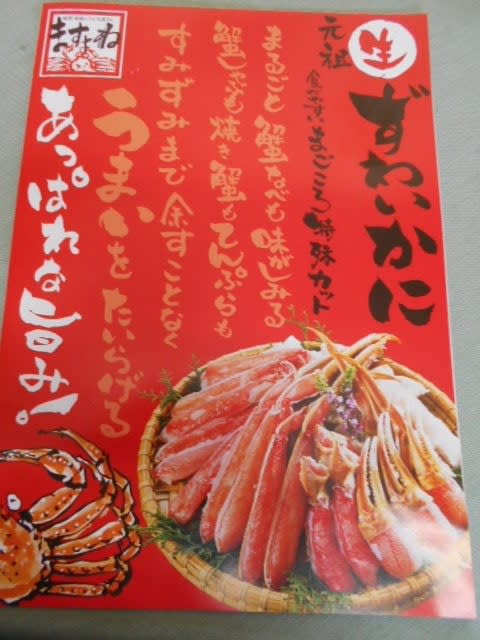 生
ずわいかに
元祖
食べやすいまごころ特殊カット
まるごと蟹なべも味がしみる
蟹しゃぶも焼き蟹もてんぷらも
すみずみまで余すことなく
うまいをたいらげる
あっぱれな旨み!
ますよね